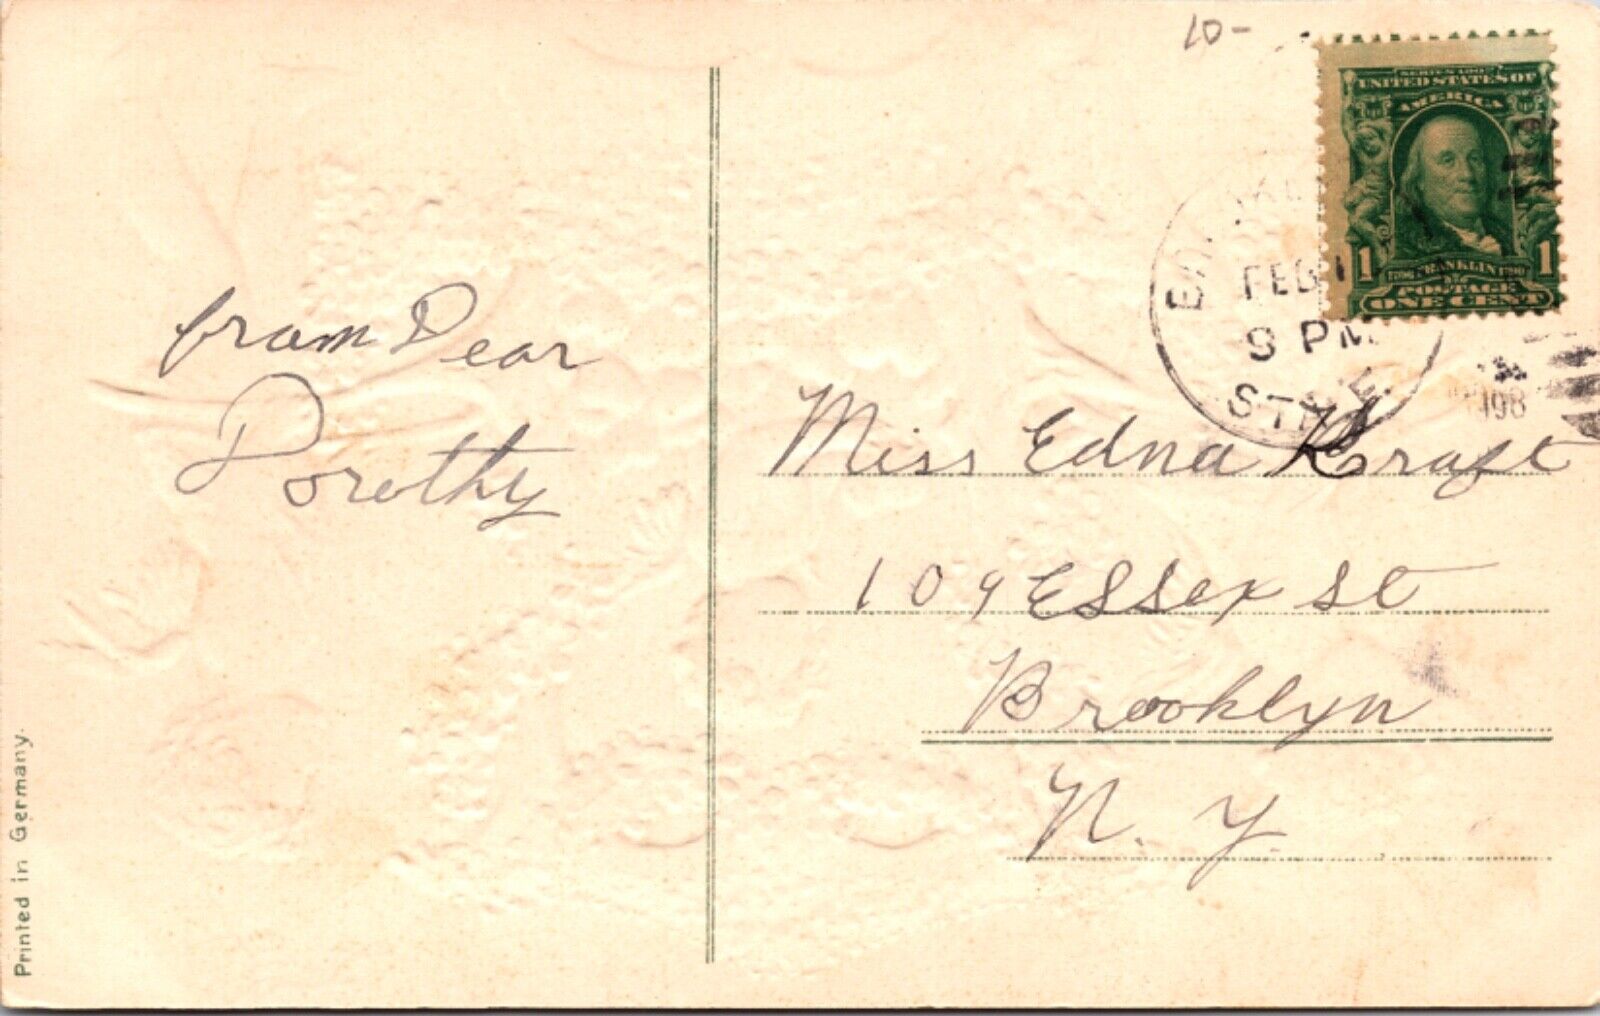 10-
SERIES 1902
UNITED STATES OF
AMERICA
1 1
FRANKLIN
POSTAGE
ONE CENT
FEB
9 PM
STA. E.
from Dear
Dorothy
Miss Edna Kraft
109 Essex St
Brooklyn
N. Y.
Printed in Germany.